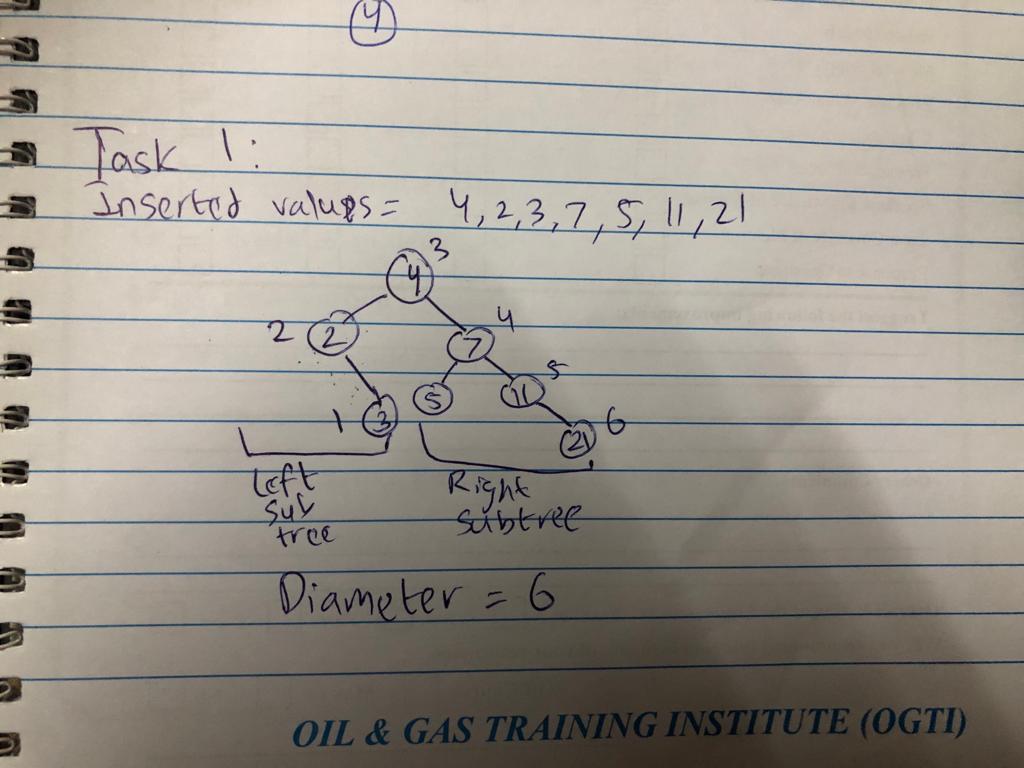 4
Task 1:
Inserted values = 4, 2, 3, 7, 5, 11, 21
4 3
2 2 7 4
5 11 5
1 3 21 6
Left Right
sub subtree
tree
Diameter = 6
OIL & GAS TRAINING INSTITUTE (OGTI)